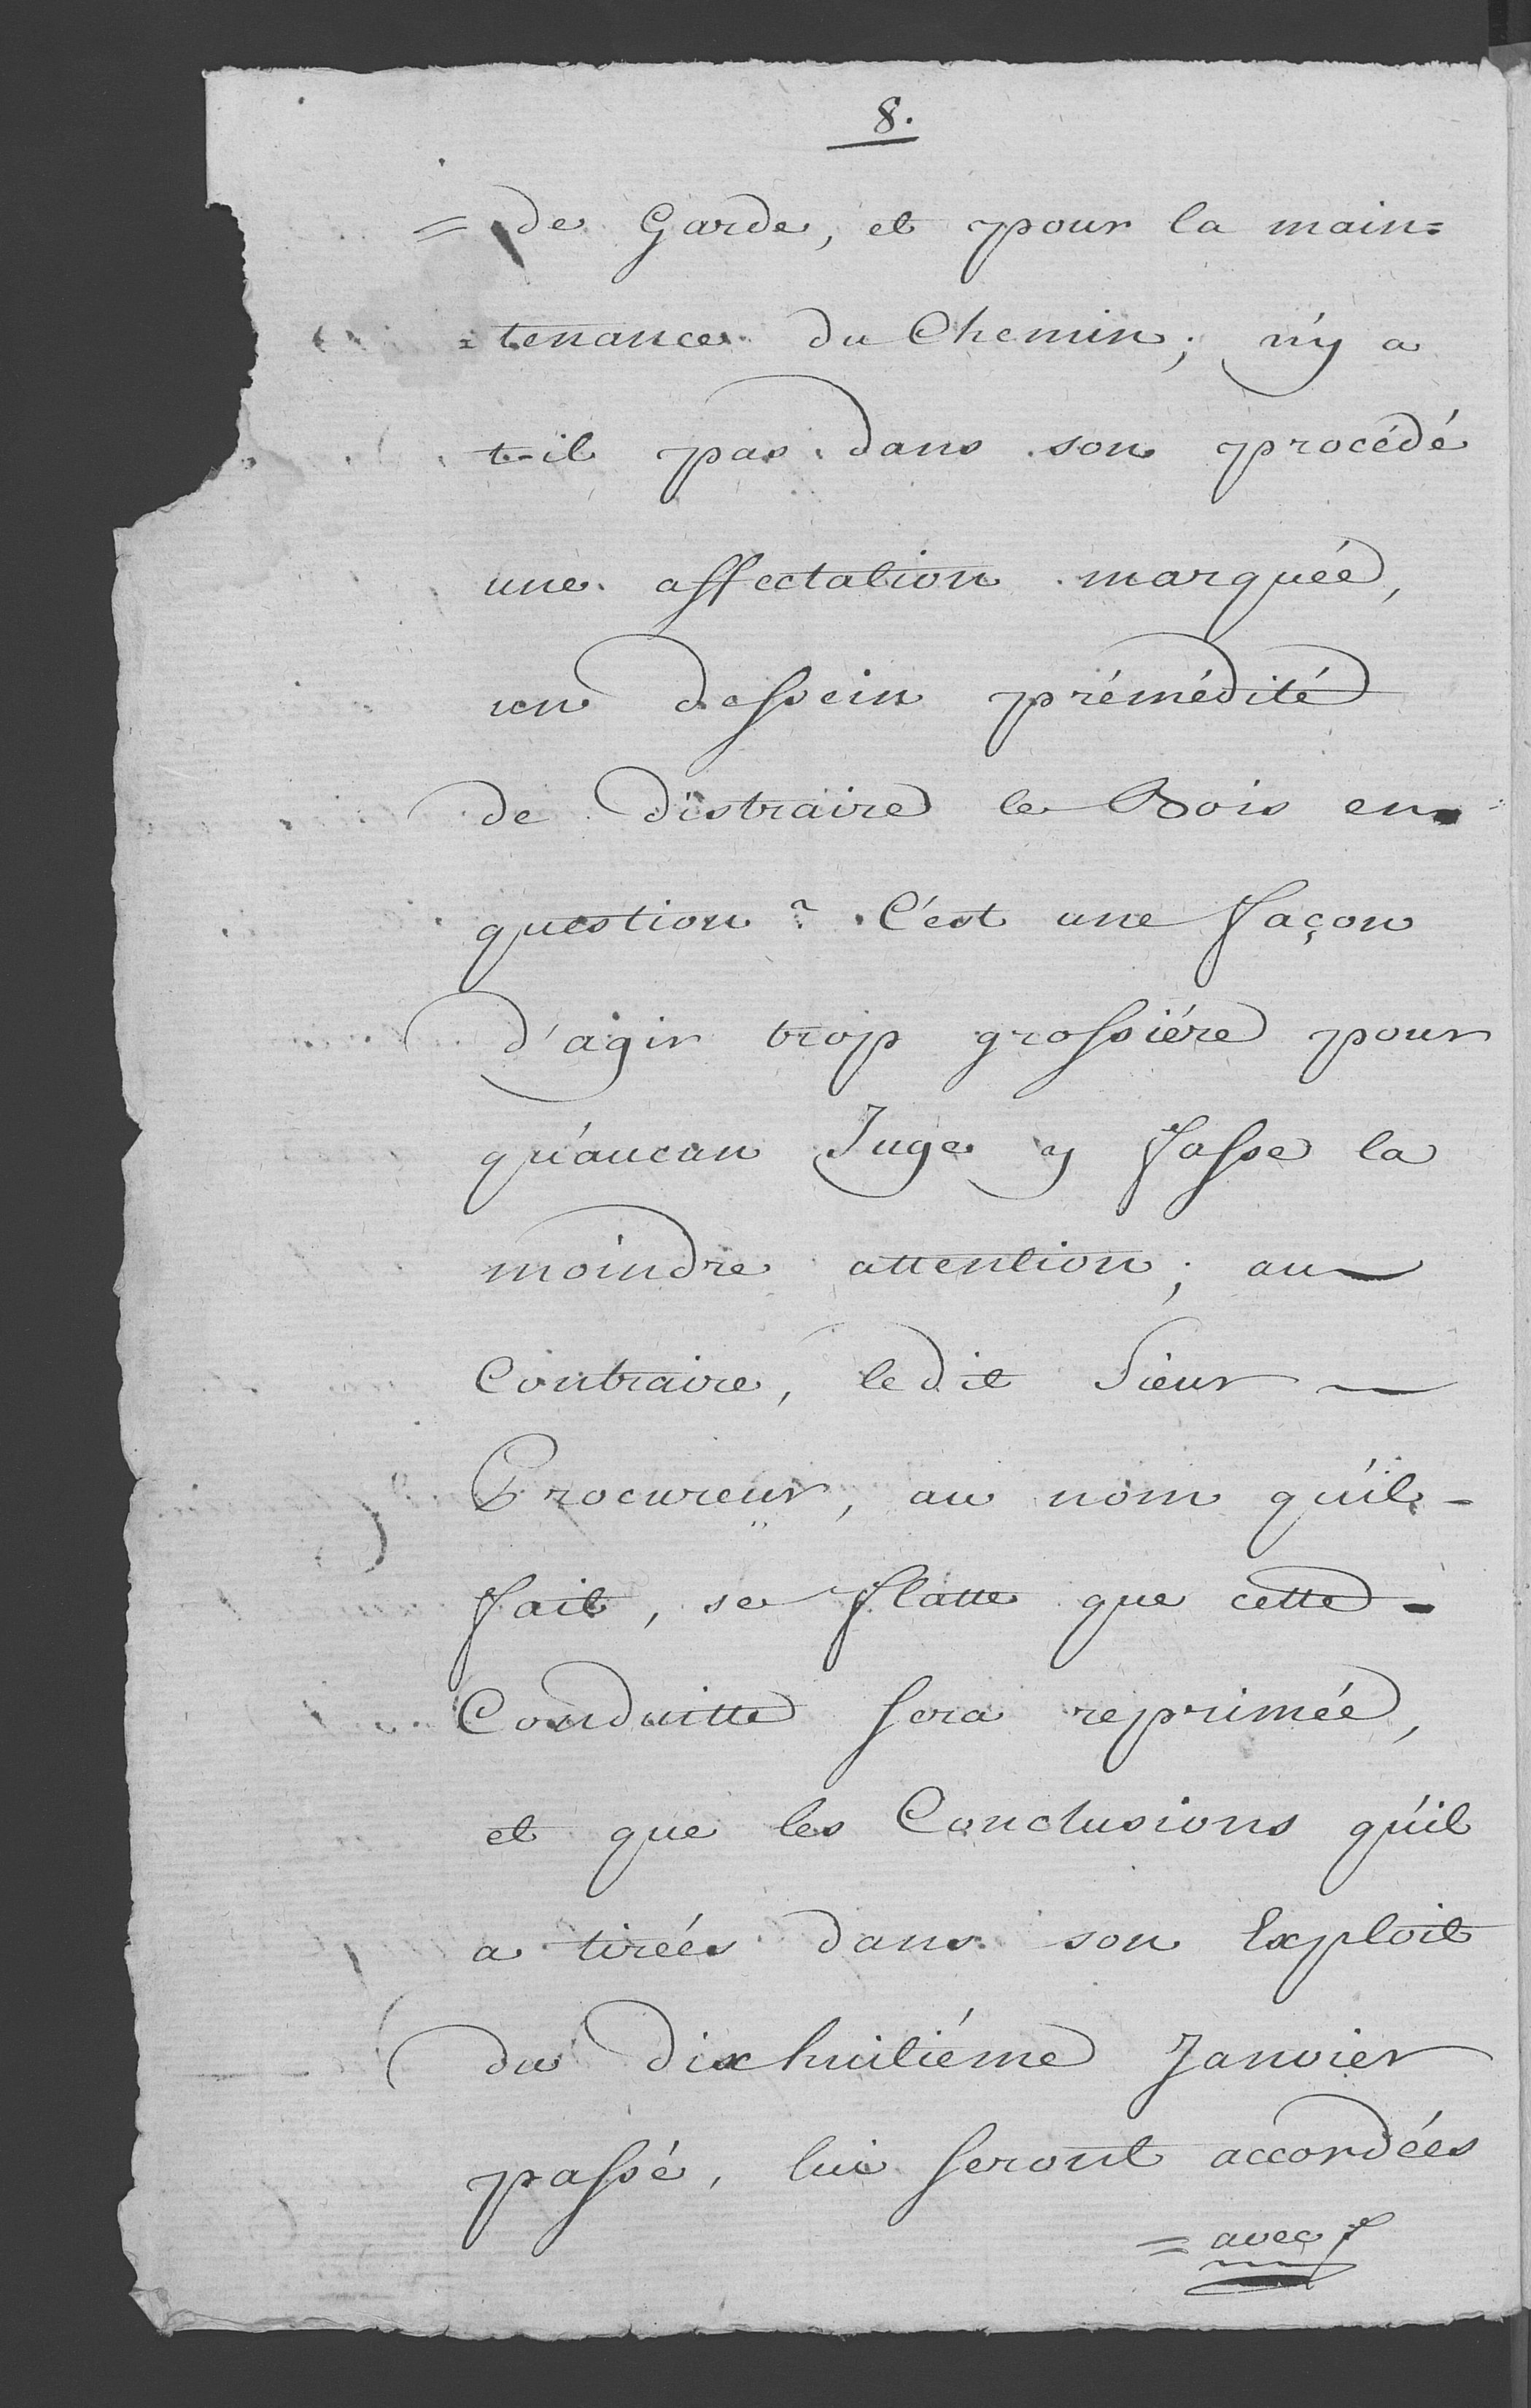 8.
= de Garde, et pour la main=
=tenance du Chemin; n'y a
t-il pas dans son procédé
une affectation marquée,
un dessein prémédité
de distraire le Bois en
question? C'est une façon
d'agir trop grossiére pour
qu'aucun Juge y fasse la
moindre attention; au
Contraire, ledit Sieur —
Procureur, au nom qu'il -
fait, se flatte que cette -
Conduitte sera reprimée,
et que les Conclusions qu'il
a tirées dans son Exploit
du dixhuitiéme Janvier
passé, lui seront accordées
= avec